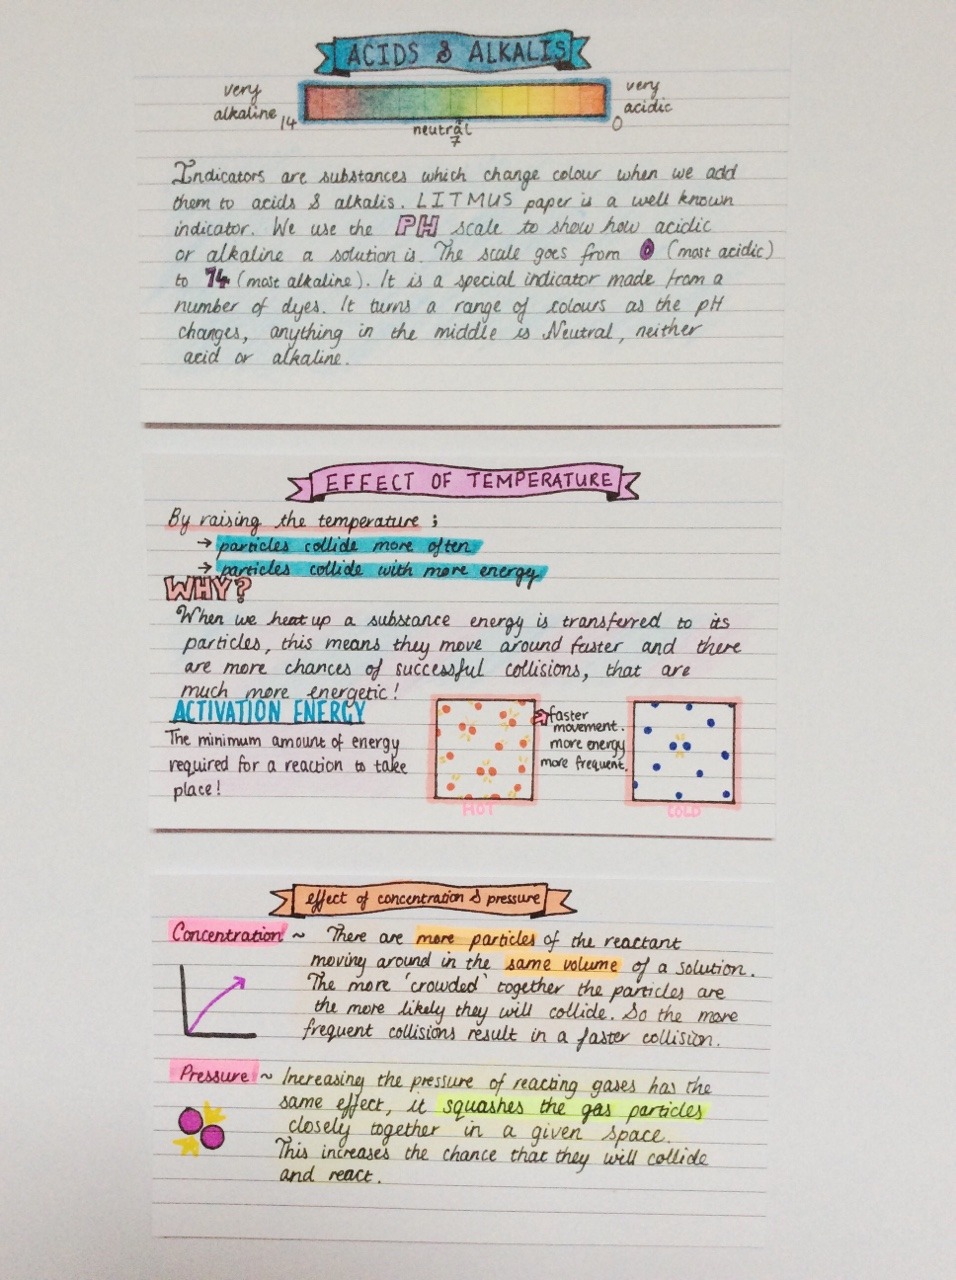 ACIDS & ALKALIS
very
alkaline 14
neutral
7
very
acidic
0
Indicators are substances which change colour when we add
them to acids & alkalis. LITMUS paper is a well known
indicator. We use the PH scale to show how acidic
or alkaline a solution is. The scale goes from 0 (most acidic)
to 14 (most alkaline). It is a special indicator made from a
number of dyes. It turns a range of colours as the pH
changes, anything in the middle is Neutral, neither
acid or alkaline.
EFFECT OF TEMPERATURE
By raising the temperature ;
→ particles collide more often
→ particles collide with more energy
WHY?
When we heat up a substance energy is transferred to its
particles, this means they move around faster and there
are more chances of successful collisions, that are
much more energetic!
ACTIVATION ENERGY
The minimum amount of energy
required for a reaction to take
place!
HOT
faster
movement.
more energy
more frequent.
COLD
effect of concentration & pressure
Concentration ~ There are more particles of the reactant
moving around in the same volume of a solution.
The more 'crowded' together the particles are
the more likely they will collide. So the more
frequent collisions result in a faster collision.
Pressure ~ Increasing the pressure of reacting gases has the
same effect, it squashes the gas particles
closely together in a given space.
This increases the chance that they will collide
and react.